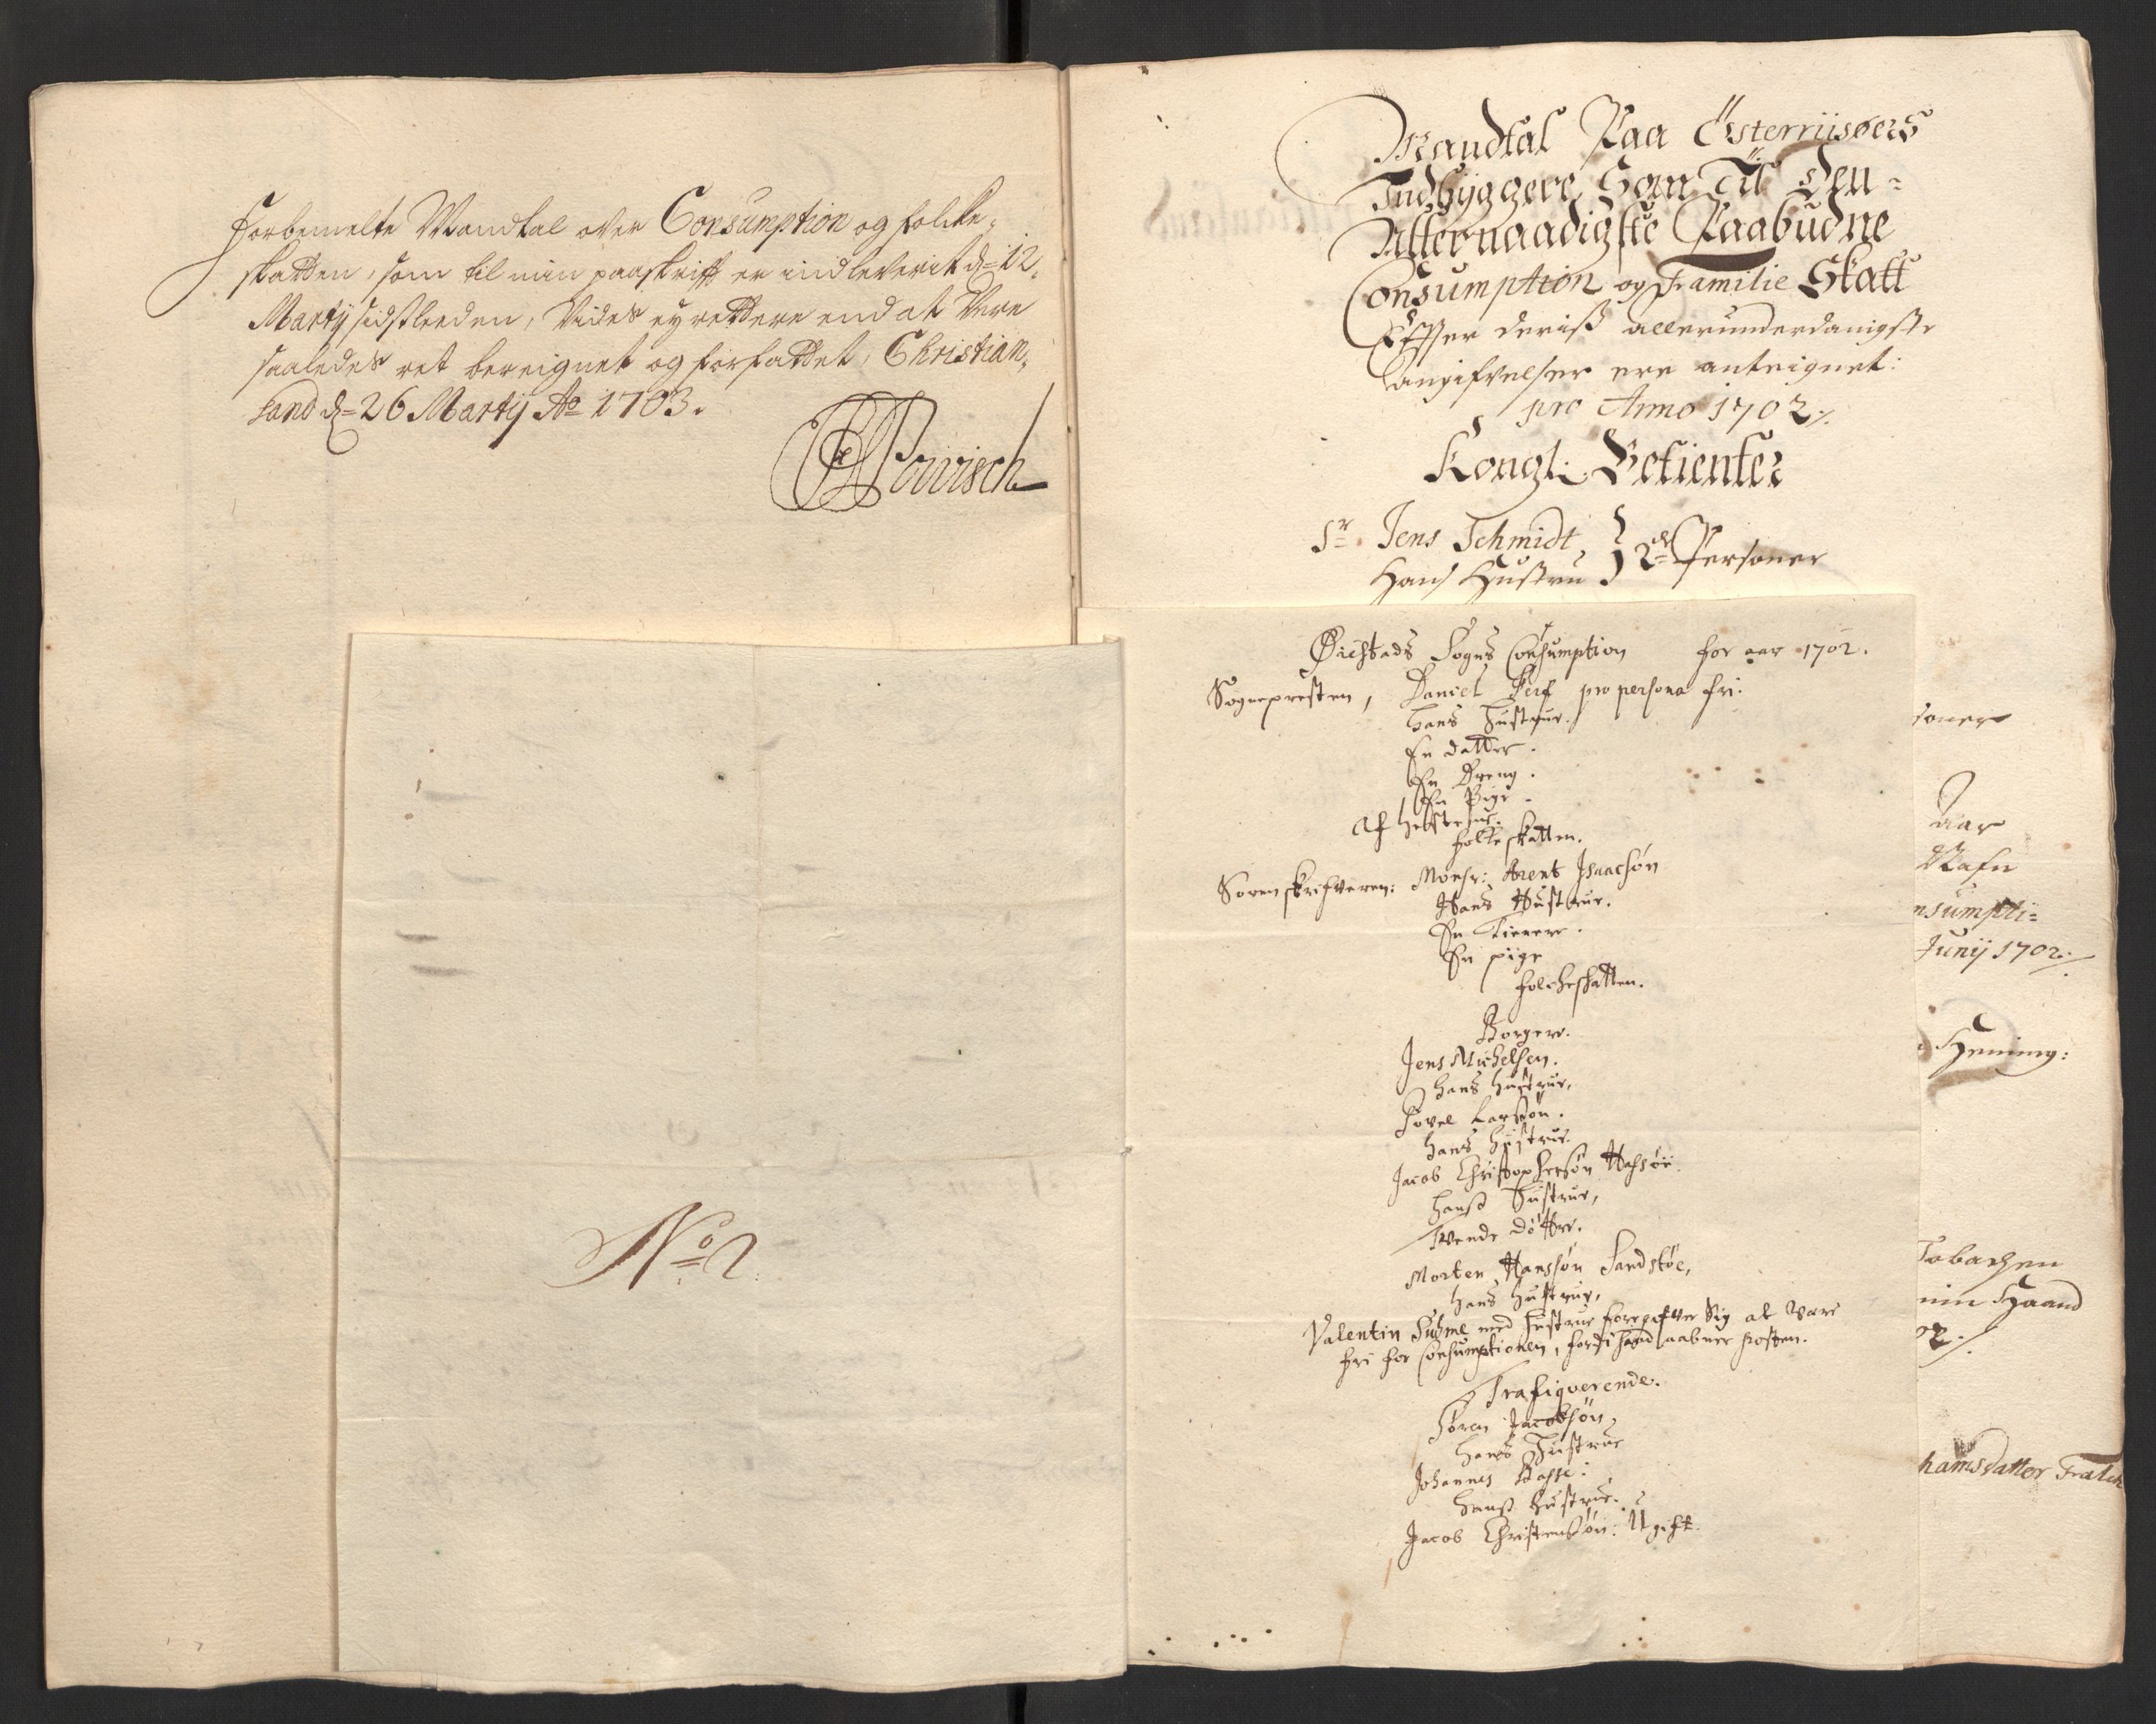 Forbemelte Mandtal over Consumption og folcke,
skatten, som til min paaskrifft er indleverit d= 12,
Martij sidstleden, Vides ey rettere end at Være
saaledes ret bereignet og forfattet, Christian,
sand d= 26 Martij Ao 1703.
No 2.
Mandtal Paa Österriisöers
Indbyggere, Som Til Den
Allernaadigste Paabudne
Consumption og Familie Skatt
Effter deris allerunderdanigste
angifvelser ere anteignet:
pro Anno 1702 ./.
Kongl: Betienter
Sr. Jens Schmidt,
Hans Hustru } 2de Personer
Öiestads Sogns Consumption for aar 1702.
Sognepresten, Daniel pro persona fri.
Hans Hustrue.
En datter.
En Dreng.
En Pige.
Af
folke skatten.
Sorenskrifveren: Monsr: Arent Isaacsön
Hans Hustrue.
En Tienere.
En pige
folckeskatten.
Borgere.
Jens Michelsen.
hans hustrue,
Povel Larsön.
hans hustrue.
Jacob Christophersön Hassöe.
hans Hustrue,
Tvende döttre.
Morten Hanssön Sandstöe,
hans hustrue,
Valentin med hustrue foregifver Sig at være
fri for Consumptionen, fordi hand aabner posten.
Trafiqverende.
Sören Jacobsön,
hans Hustrue
Johannes Basse:
hans hustrue.
Jacob Christensön: Ugift.
soner
Aar
Nafn
nsumpti=
Junij 1702 ./.
Henning:
Tobachen
min Haand
02 ./.
hamsdatter